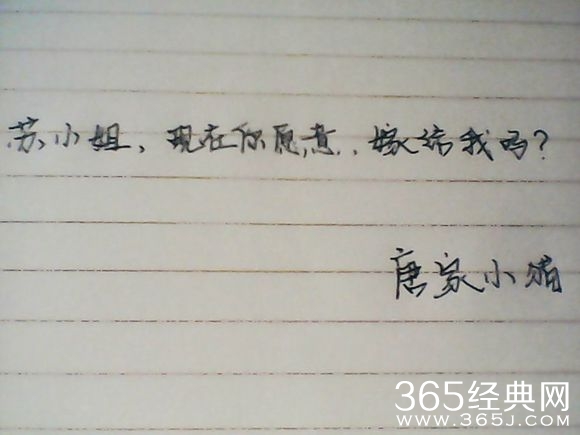 苏小姐、现在你愿意、嫁给我吗？
唐家小猫
365经典网
www.365J.com